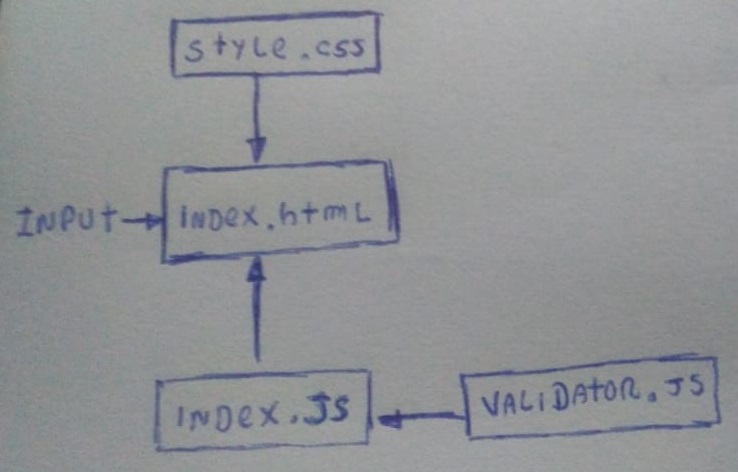 style.css
INPUt
iNDex.htmL
INDEX.JS
VALiDAtOR.JS